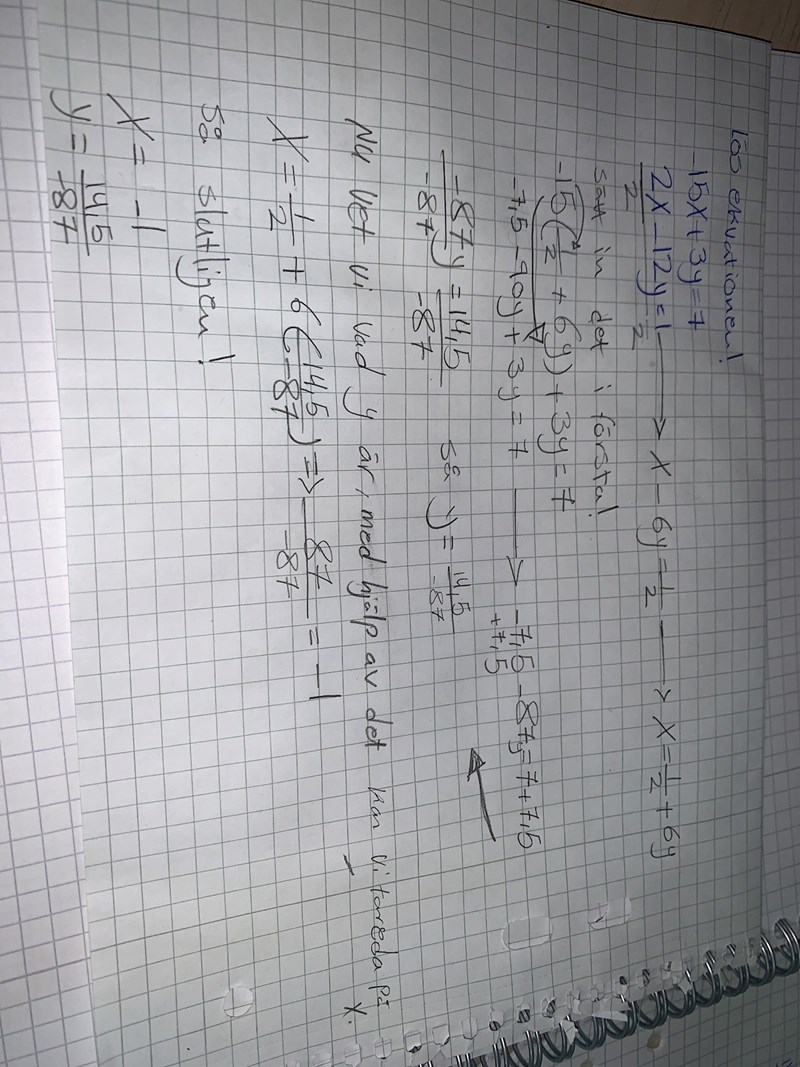 Lös ekvationen!
-15x+3y=7
2x-12y=1 → x-6y=1/2 → x=1/2+6y
2 2
Sätt in det i första!
-15(1/2+6y)+3y=7
-7,5-90y+3y=7 → -7,5-87y=7+7,5
+7,5
-87y/-87=14,5/-87 så y=14,5/-87
Nu vet vi vad y är, med hjälp av det kan vi ta reda på x.
x=1/2+6(14,5/-87) => 87/-87=-1
Så slutligen!
x=-1
y=14,5/-87